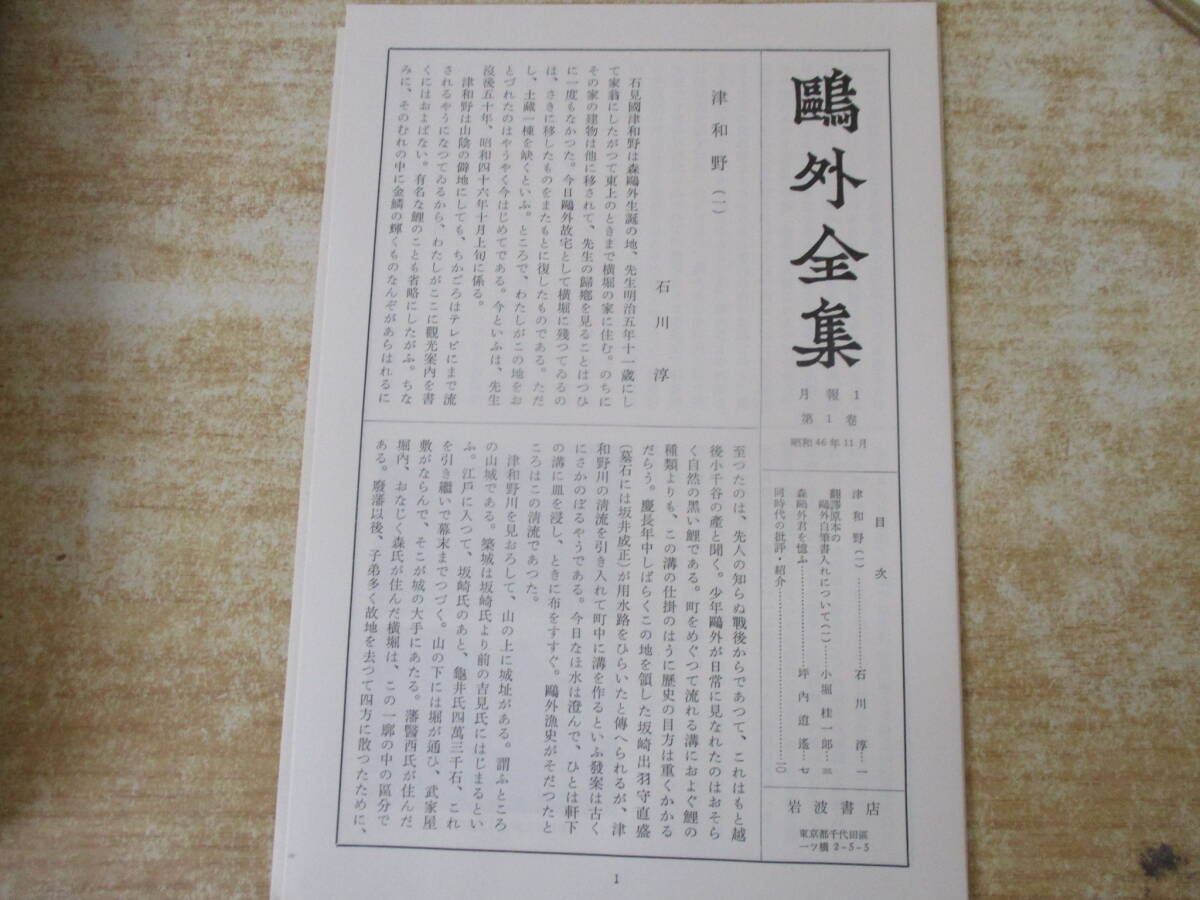 鷗外全集
月報1
第1卷
昭和46年11月
目次
津和野(一)……石川淳…一
翻譯原本の
鷗外自筆書入れについて(一)…小堀桂一郎…三
森鷗外君を憶ふ……坪內逍遙…七
同時代の批評・紹介……一〇
岩波書店
東京都千代田區
一ツ橋2-5-5
津和野(一)
石川淳
石見國津和野は森鷗外生誕の地、先生明治五年十一歲にし
て家翁にしたがつて東上のときまで橫堀の家に住む。のちに
その家の建物は他に移されて、先生の歸鄕を見ることはつひ
に一度もなかつた。今日鷗外故宅として橫堀に殘つてゐるの
は、さきに移したものをまたもとに復したものである。ただ
し、土藏一棟を缺くといふ。ところで、わたしがこの地をお
とづれたのはやうやく今はじめてである。今といふは、先生
沒後五十年、昭和四十六年十月上旬に係る。
津和野は山陰の僻地にしても、ちかごろはテレビにまで流
されるやうになつてゐるから、わたしがここに觀光案內を書
くにはおよばない。有名な鯉のことも省略にしたがふ。ちな
みに、そのむれの中に金鱗の輝くものなんぞがあらはれるに
至つたのは、先人の知らぬ戰後からであつて、これはもと越
後小千谷の產と聞く。少年鷗外が日常に見なれたのはおそら
く自然の黑い鯉である。町をめぐつて流れる溝におよぐ鯉の
種類よりも、この溝の仕掛のはうに歷史の目方は重くかかる
だらう。慶長年中しばらくこの地を領した坂崎出羽守直盛
(墓石には坂井成正)が用水路をひらいたと傳へられるが、津
和野川の淸流を引き入れて町中に溝を作るといふ發案は古く
にさかのぼるやうである。今日なほ水は澄んで、ひとは軒下
の溝に皿を浸し、ときに布をすすぐ。鷗外漁史がそだつたと
ころはこの淸流であつた。
津和野川を見おろして、山の上に城址がある。謂ふところ
の山城である。築城は坂崎氏より前の吉見氏にはじまるとい
ふ。江戶に入つて、坂崎氏のあと、龜井氏四萬三千石、これ
を引き繼いで幕末までつづく。山の下には堀が通ひ、武家屋
敷がならんで、そこが城の大手にあたる。藩醫西氏が住んだ
堀內、おなじく森氏が住んだ橫堀は、この一廓の中の區分で
ある。廢藩以後、子弟多く故地を去つて四方に散つたために、
1